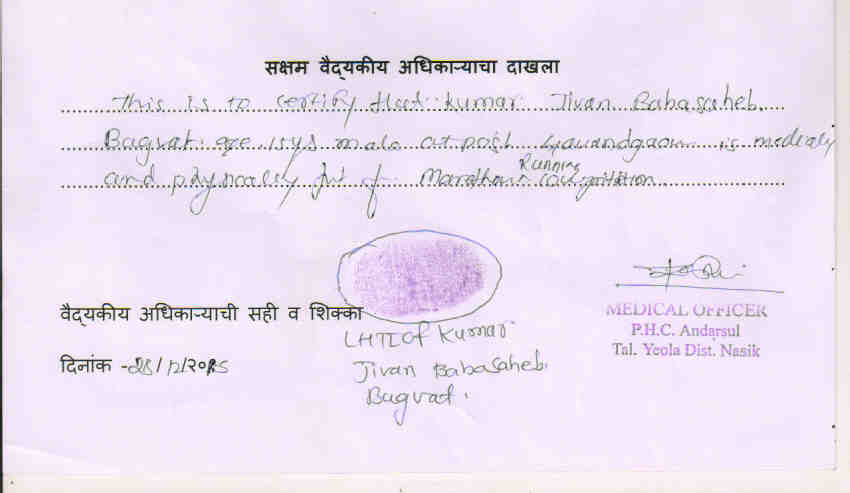 सक्षम वैद्यकीय अधिकाऱ्याचा दाखला
This is to certify that kumar Jivan Babasaheb
Bagvat age 15ys male at post is medicaly
and fit Marathon Running
वैद्यकीय अधिकाऱ्याची सही व शिक्का
LHTI of Kumar
Jivan Babasaheb
Bagvat.
MEDICAL OFFICER
P.H.C. Andarsul
Tal. Yeola Dist. Nasik
दिनांक